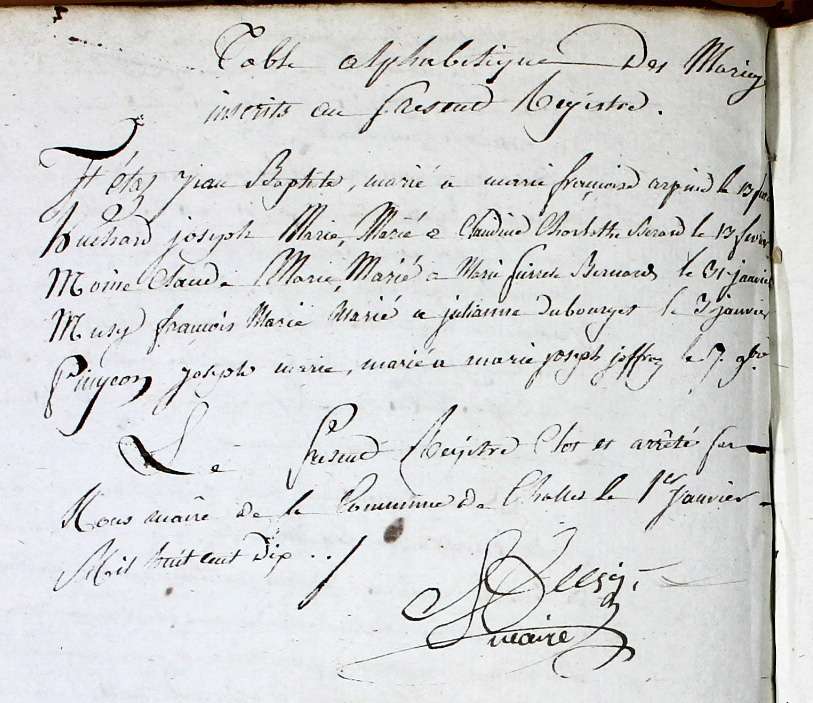 Table alphabetique Des Mariez
inscrits au présent Registre.
jean Baptiste, marié a marie françoise arpin le 13
huchard joseph Marie, Marié a Claudine Charlotte Berard le 13 fevrier
Moine Claude Marie, Marié a Marie Bernard le 31 janvier
Musy françois Marie Marié a julianne dubourget le 3 janvier
Pingeon joseph marie, marié a marie joseph joffray le 7. 9bre
Le présent Registre Clos et arrêté par
Nous maire de la Commune de Challes le 1er janvier
Mil huit cent Dix . . /
maire